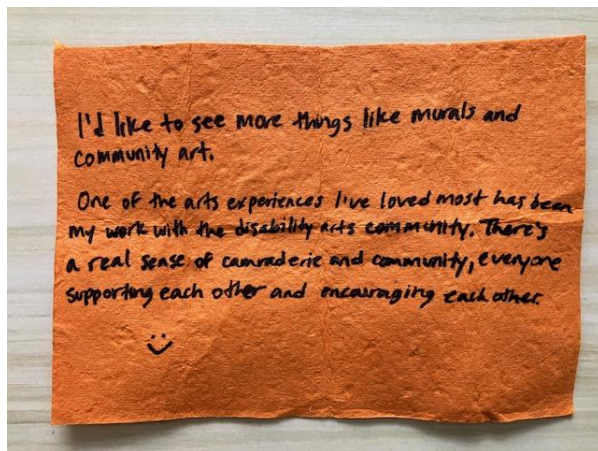 I'd like to see more things like murals and
community art.
One of the arts experiences I've loved most has been
my work with the disability arts community. There's
a real sense of camraderie and community, everyone
supporting each other and encouraging each other.